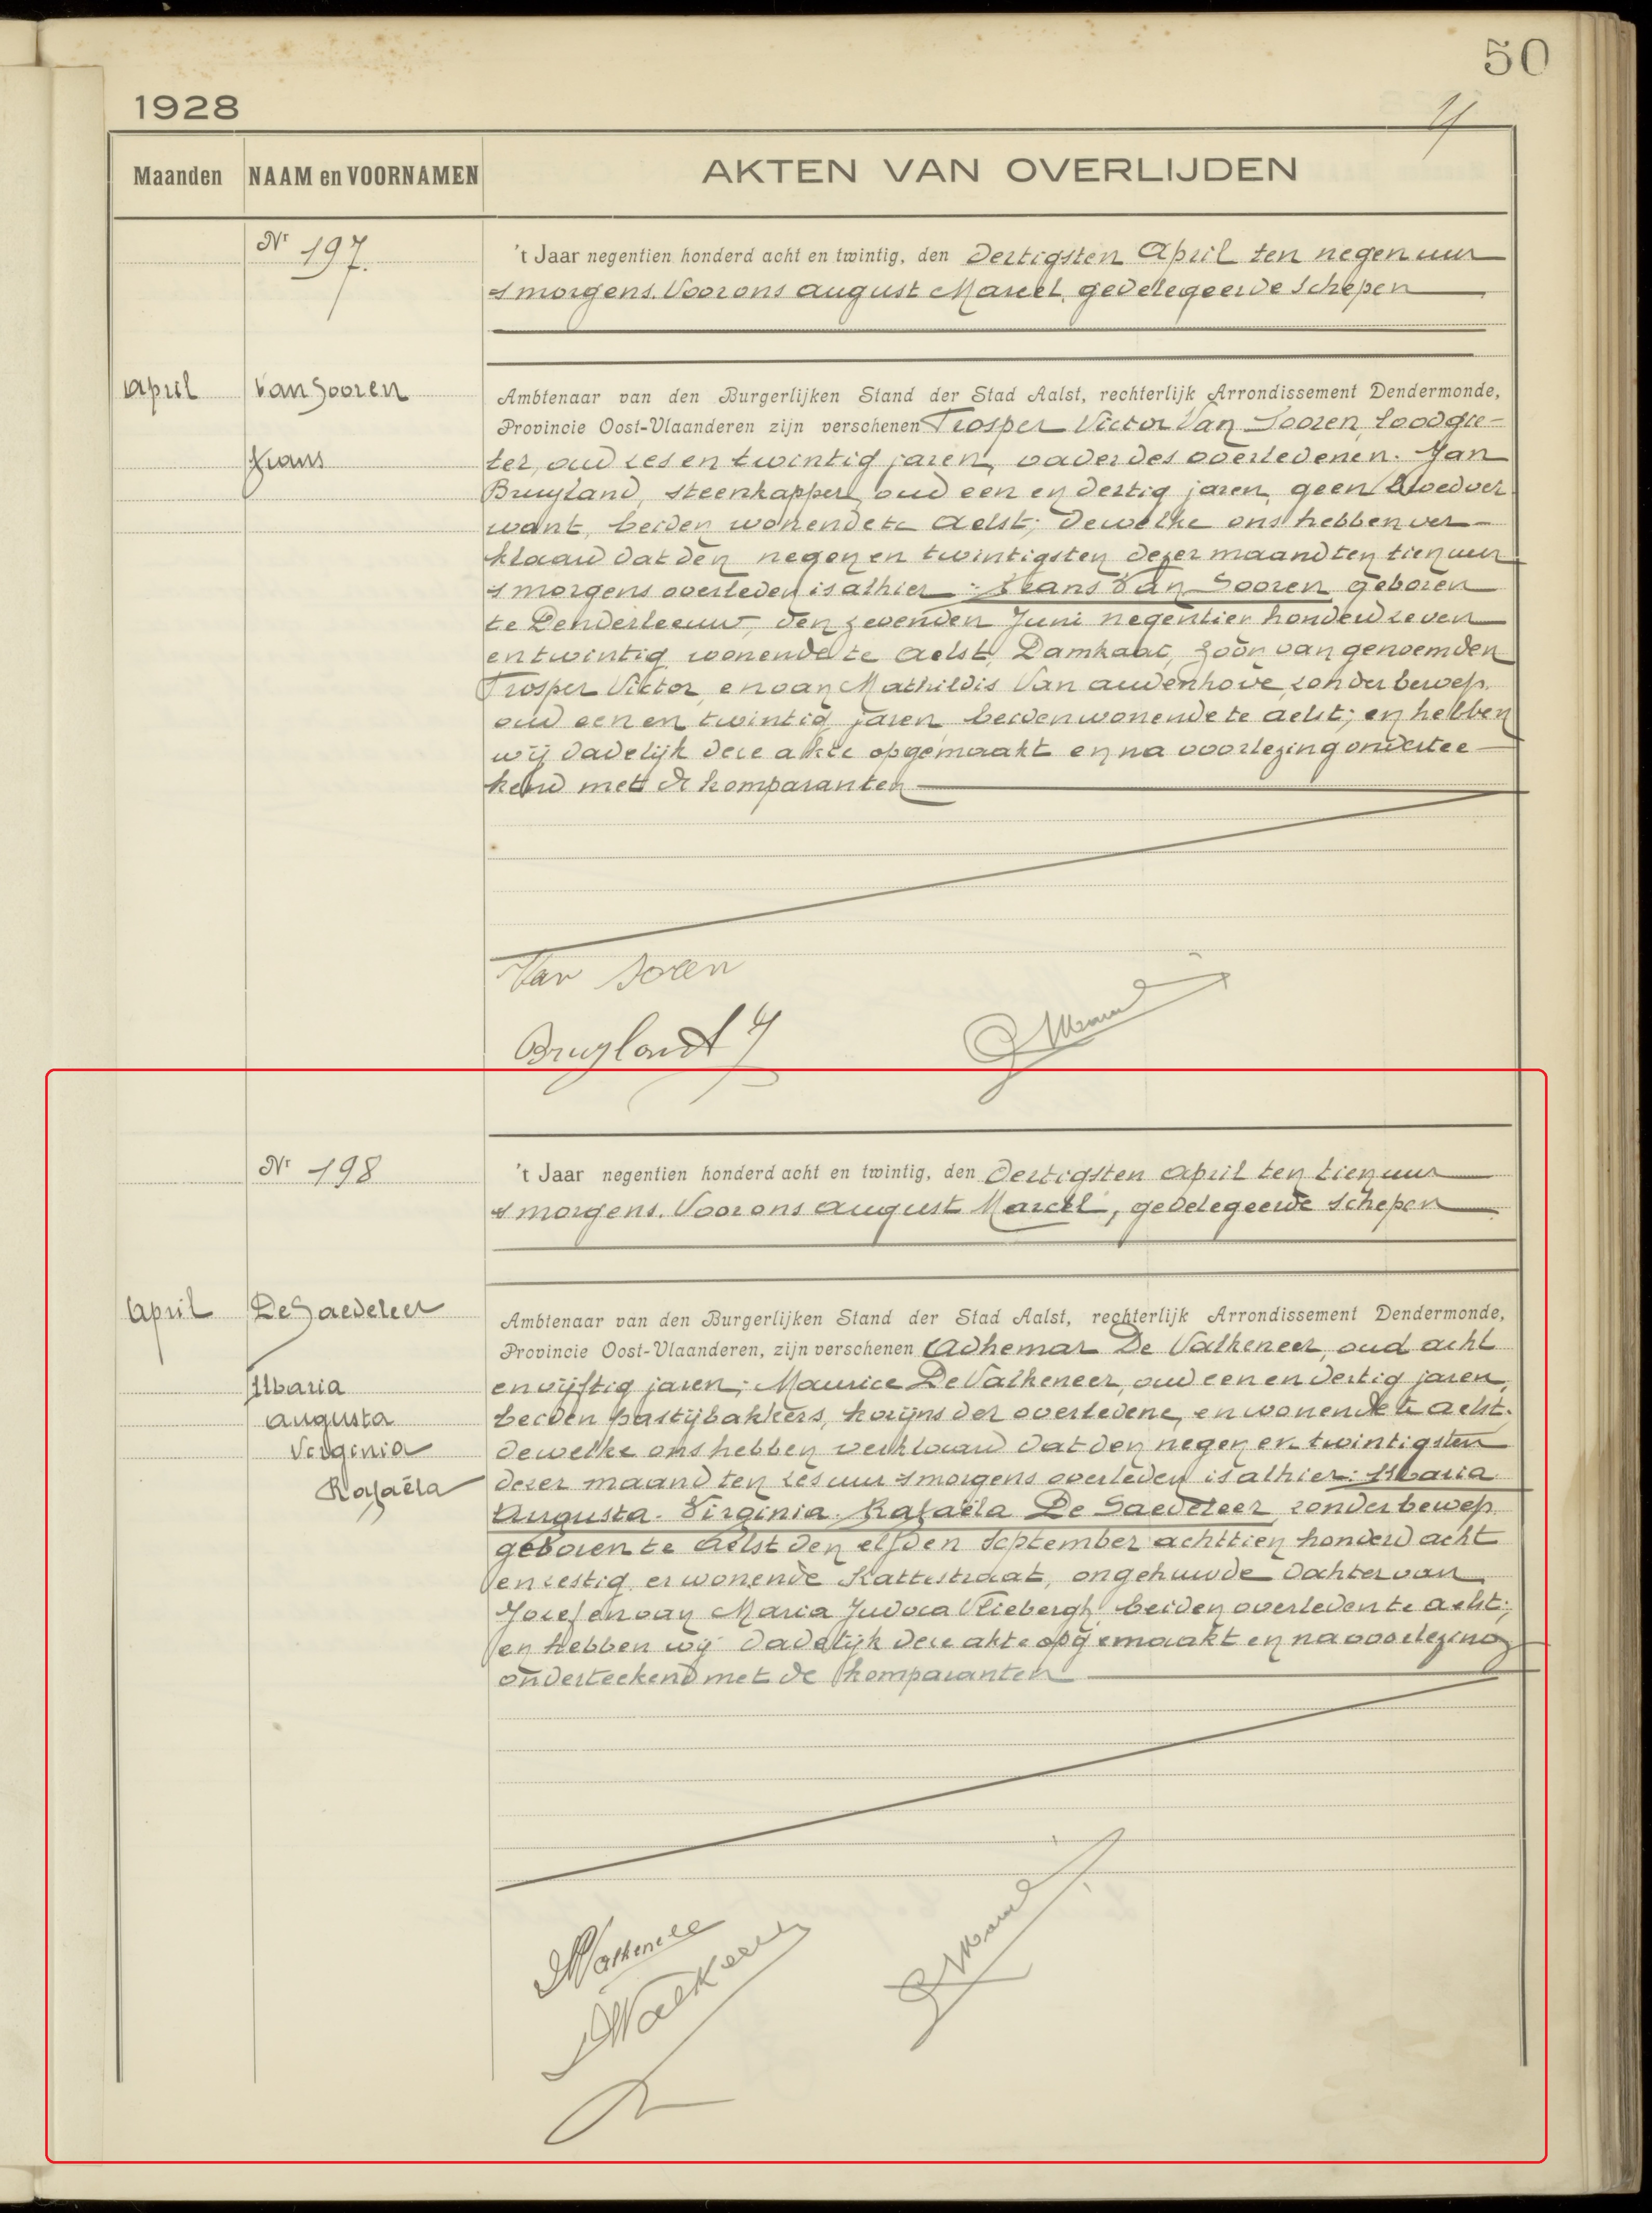 50
4
1928
Maanden NAAM en VOORNAMEN AKTEN VAN OVERLIJDEN
Nr 197.
't Jaar negentien honderd acht en twintig, den dertigsten April ten negen uur
s morgens. Voor ons August Marcel, gedelegeerde Schepen
April
Van Sooren
Frans
Ambtenaar van den Burgerlijken Stand der Stad Aalst, rechterlijk Arrondissement Dendermonde,
Provincie Oost-Vlaanderen zijn verschenen Prosper Victor Van Sooren, loodgie-
ter, oud zes en twintig jaren, vader des overledenen. Jan
Bruyland, steenkapper, oud een en dertig jaren, geen bloedver
want, beiden wonende te Aelst; dewelke ons hebben ver-
klaard dat den negen en twintigsten dezer maand ten tien uur
s morgens overleden is alhier: Frans Van Sooren, geboren
te Denderleeuw, den zevenden Juni negentien honderd zeven
en twintig, wonende te Aelst, Damkaai, zoon van genoemden
Prosper Victor, en van Mathildis Van audenhove, zonder beroep,
oud een en twintig jaren, beiden wonende te aelst; en hebben
wij dadelijk deze akte opgemaakt en na voorlezing ondertee-
kend met de komparanten
Van Soren
Bruyland J
Marcel
Nr 198
't Jaar negentien honderd acht en twintig, den dertigsten April ten tien uur
s morgens. Voor ons August Marcel, gedelegeerde Schepen
April
De Saedeleer
Maria
Augusta
Virginia
Rafaëla
Ambtenaar van den Burgerlijken Stand der Stad Aalst, rechterlijk Arrondissement Dendermonde,
Provincie Oost-Vlaanderen, zijn verschenen Adhemar De Valkeneer, oud acht
en vijftig jaren; Maurice De Valkeneer, oud een en dertig jaren,
beiden pastijbakkers, kozijns der overledene, en wonende te aelst;
dewelke ons hebben verklaard dat den negen en twintigsten
dezer maand ten zes uur s morgens overleden is alhier: Maria
Augusta. Virginia. Rafaëla De Saedeleer, zonder beroep
geboren te Aelst den elfden September achttien honderd acht
en zestig, er wonende Kattestraat, ongehuwde dochter van
Jozef en van Maria Judoca Vliebergh, beiden overleden te aelst;
en hebben wij dadelijk deze akte opgemaakt en na voorlezing
onderteekend met de komparanten
Marcel